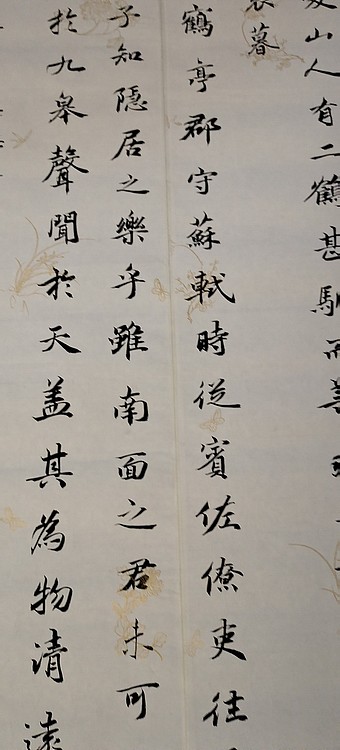 山人有二鶴甚馴而善
暮
鶴亭郡守蘇軾時從賓佐僚吏往
子知隱居之樂乎雖南面之君未可
於九皋聲聞於天盖其為物清遠